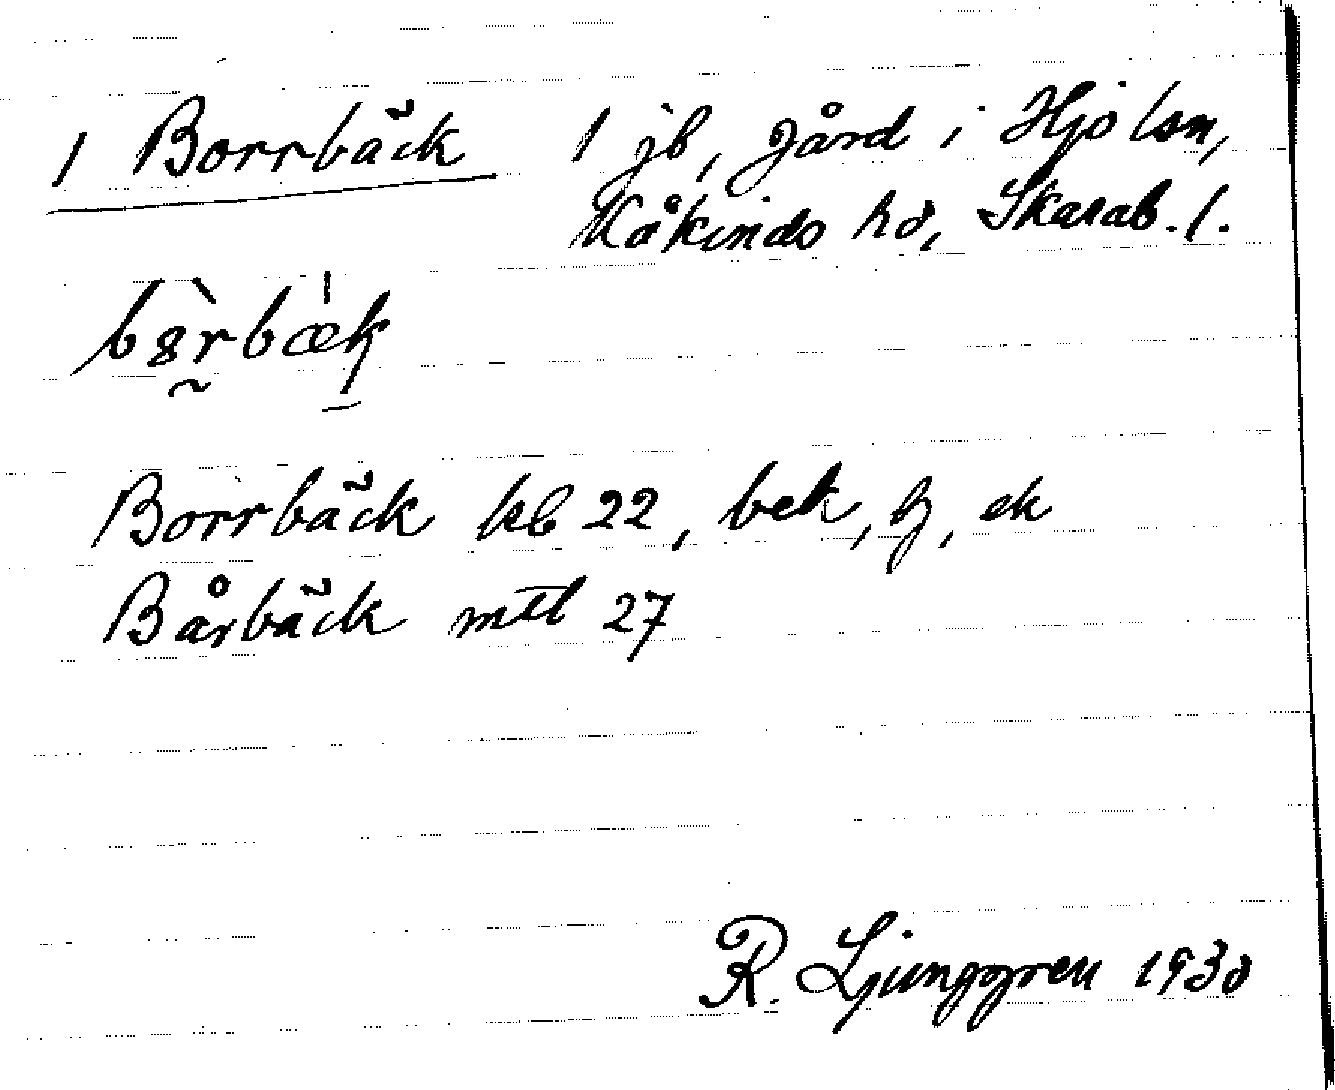 1 Borrbäck 1 jb, gård i Hjo lsn,
Kåkinds hd, Skarab. l.
Borrbäck kb 22, bek, hj, ek
Bårbäck mtl 27
R. Ljunggren 1930